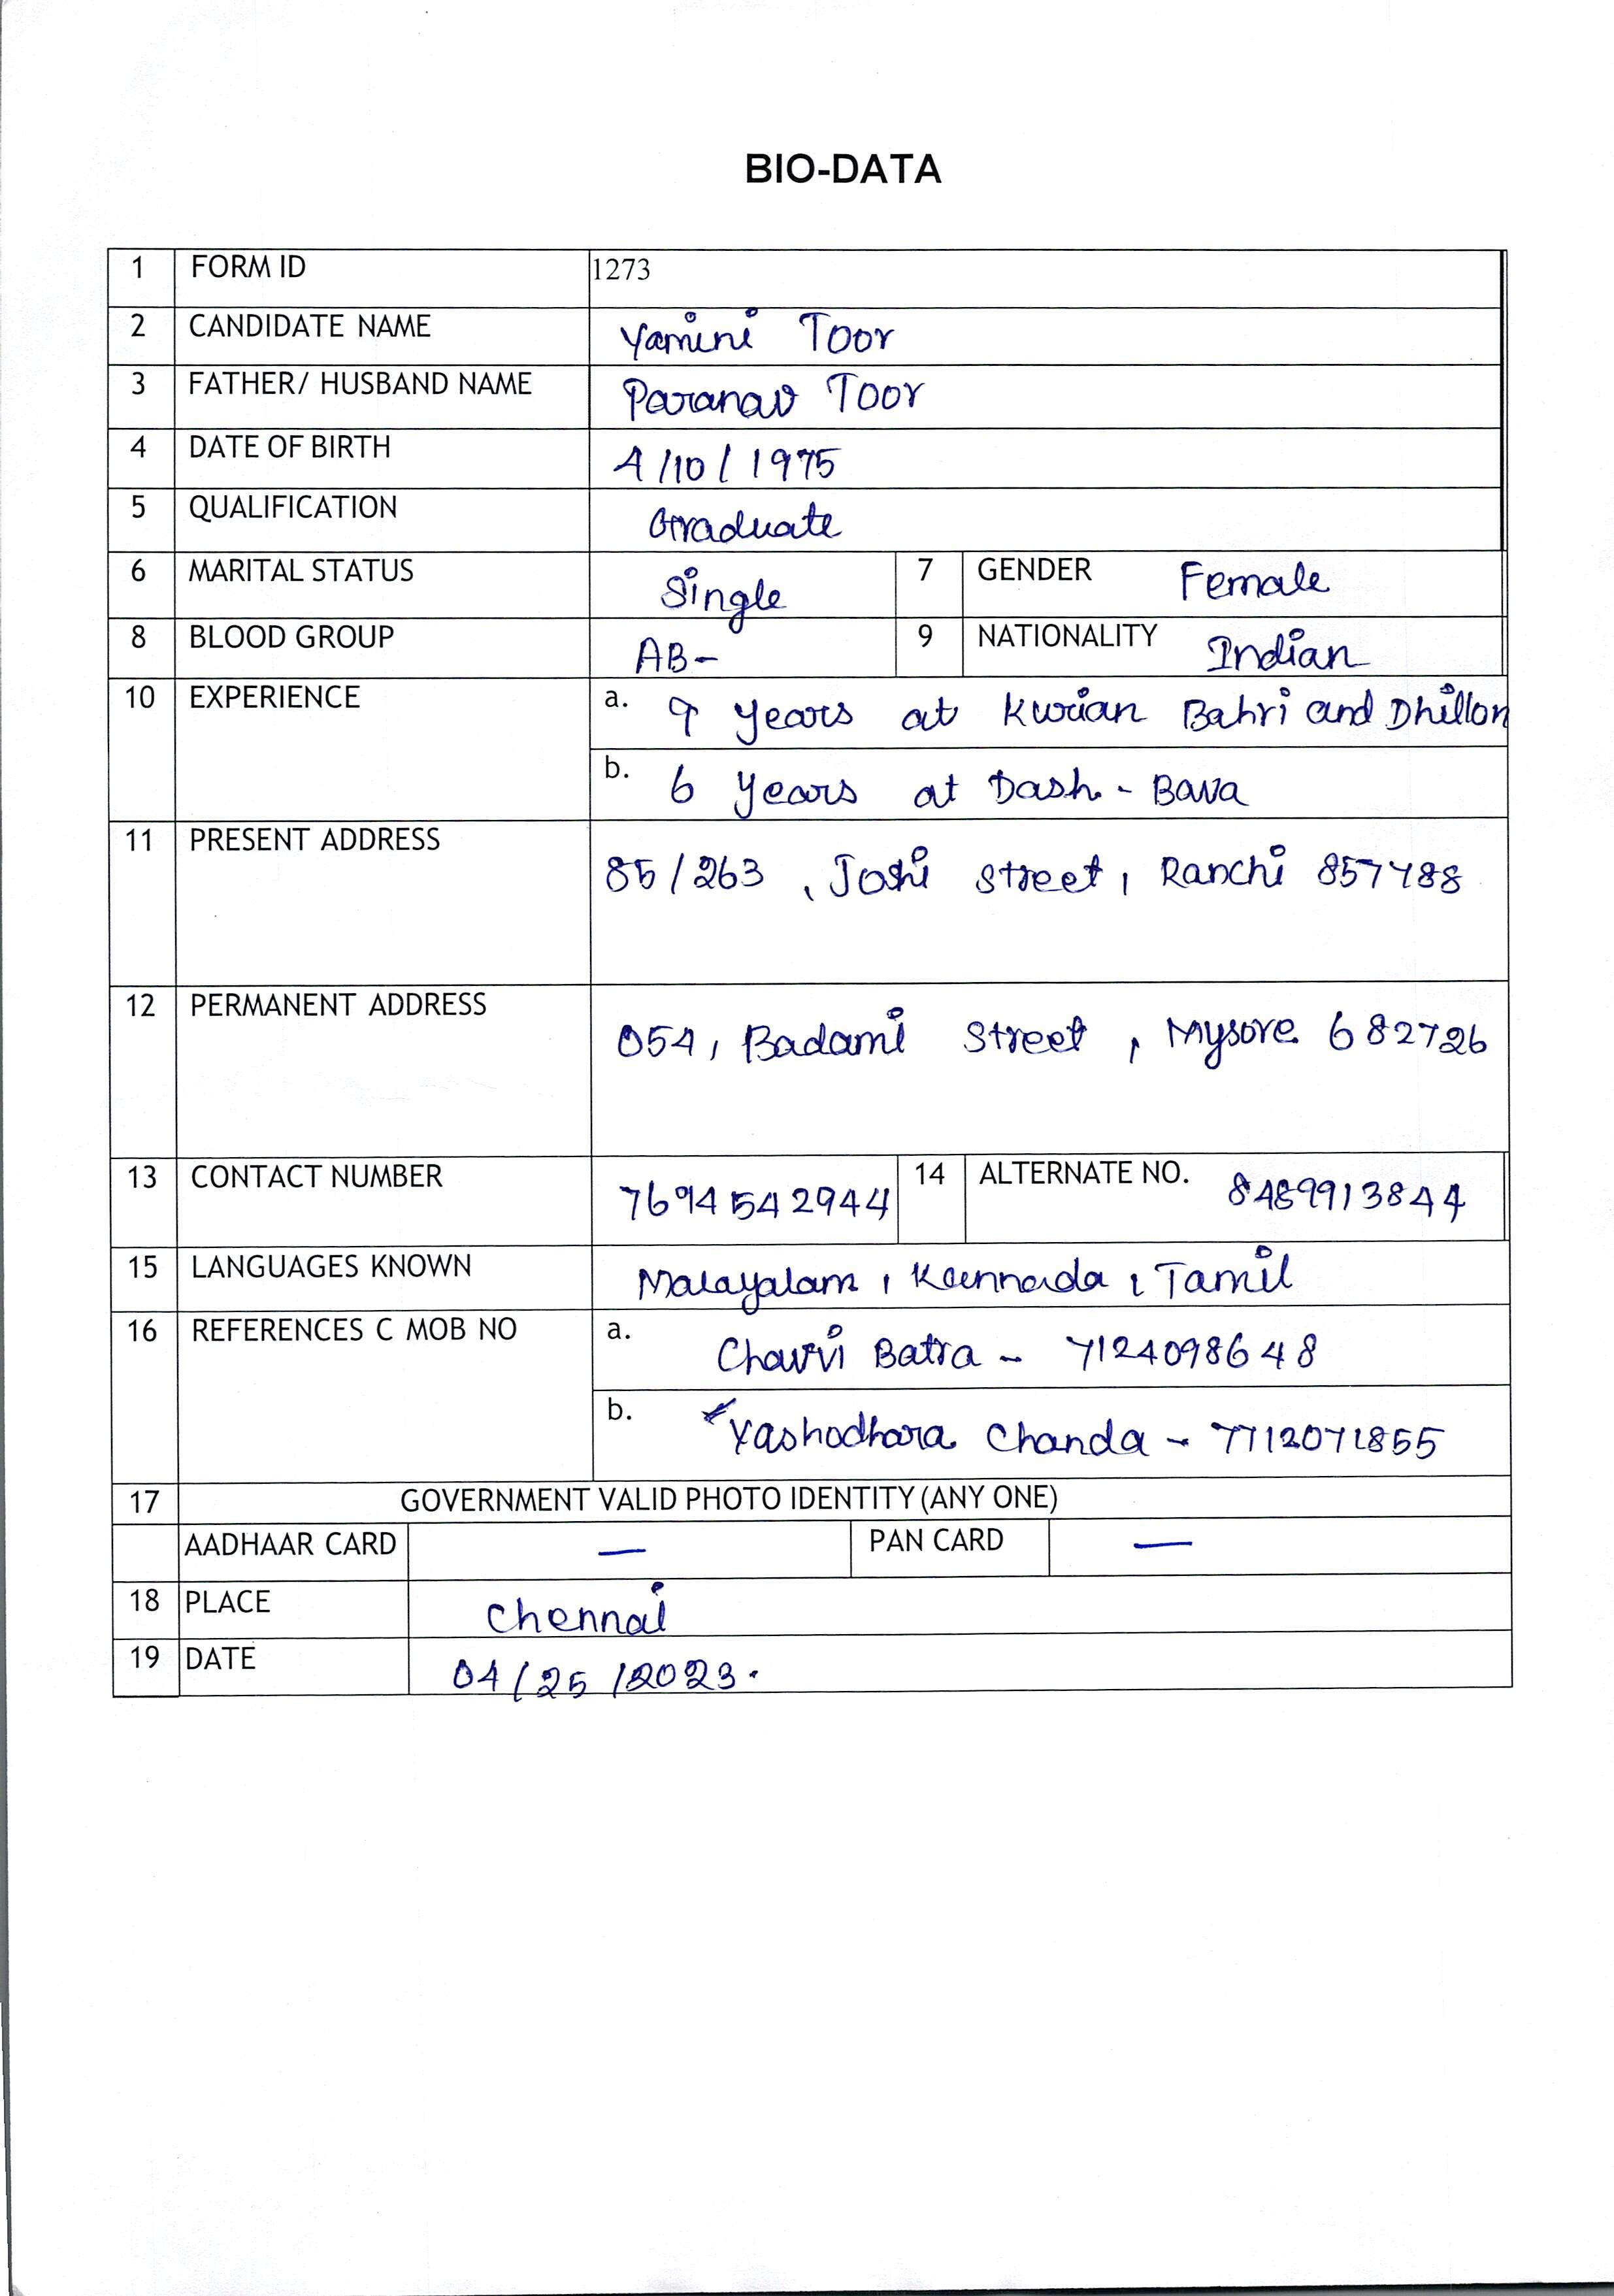 BIO-DATA
1 FORM ID 1273
2 CANDIDATE NAME Yamini Toor
3 FATHER/ HUSBAND NAME Paranav Toor
4 DATE OF BIRTH 4/10/1975
5 QUALIFICATION Graduate
6 MARITAL STATUS Single 7 GENDER Female
8 BLOOD GROUP AB- 9 NATIONALITY Indian
10 EXPERIENCE a. 9 years at Kurian Bahri and Dhillon
b. 6 years at Dash - Bava
11 PRESENT ADDRESS 85/263, Joshi Street, Ranchi 857488
12 PERMANENT ADDRESS 054, Badami Street, Mysore 682726
13 CONTACT NUMBER 7694542944 14 ALTERNATE NO. 8489913844
15 LANGUAGES KNOWN Malayalam, Kannada, Tamil
16 REFERENCES C MOB NO a. Charvi Batra - 7124098648
b. Yashodhara Chanda - 7712071855
17 GOVERNMENT VALID PHOTO IDENTITY (ANY ONE)
AADHAAR CARD — PAN CARD —
18 PLACE Chennai
19 DATE 04/25/2023.